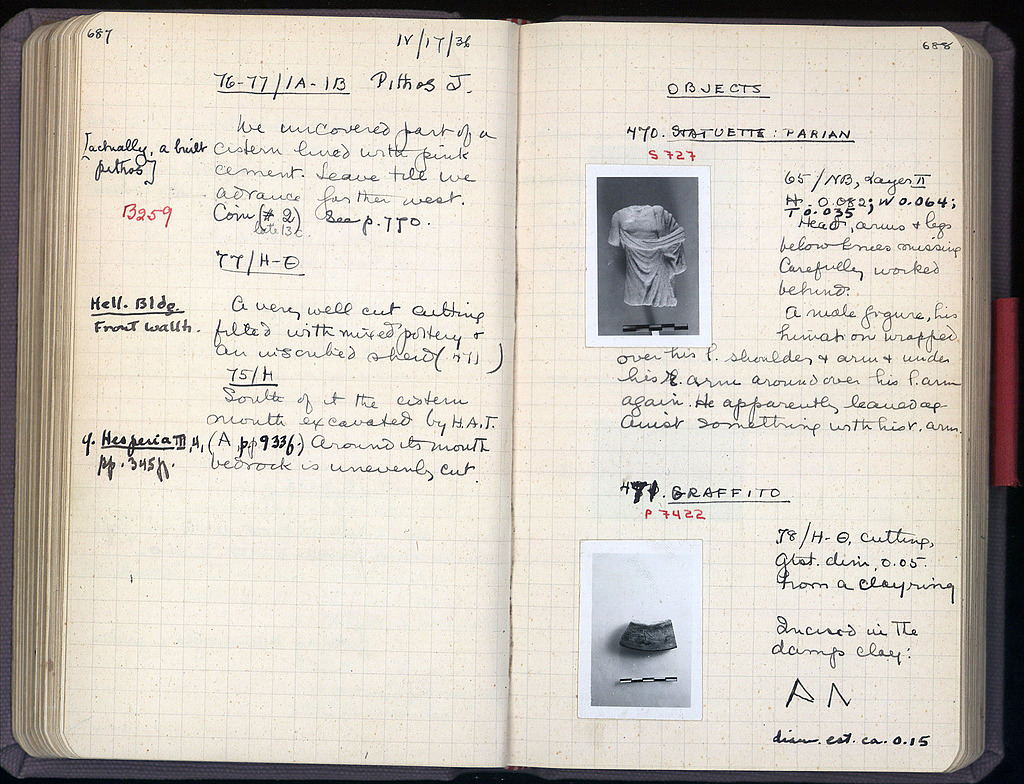 687
IV/17/36
76-77/ΙΑ-ΙΒ Pithos J.
We uncovered part of a
[actually, a built
pithos]
cistern lined with pink
cement. Leave till we
advance further west.
B259
Coin (# 2) See p. 770.
late 13 c.
77/Η-Θ
Hell. Bldg.
Front wall
A very well cut cutting
filled with mixed pottery &
an inscribed sherd (471)
75/Η
South of it the cistern
mouth excavated by H.A.T.
cf. Hesperia III, 4,
pp. 345ff.
(A, pp 933f.) Around its mouth
bedrock is unevenly cut
688
OBJECTS
470. STATUETTE: PARIAN
S 727
65/ΝΒ, Layer II
H. 0.082; W 0.064;
T 0.035
Head, arms & legs
below knees missing
Carefully worked
behind.
A male figure, his
himation wrapped
over his l. shoulder & arm & under
his r. arm around over his l. arm
again. He apparently leaned ag-
ainst something with his r. arm.
471. GRAFFITO
P 7422
78/Η-Θ, cutting,
Gtst. dim. 0.05.
From a clay ring
Incised in the
damp clay:
ΑΝ
diam. est. ca. 0.15